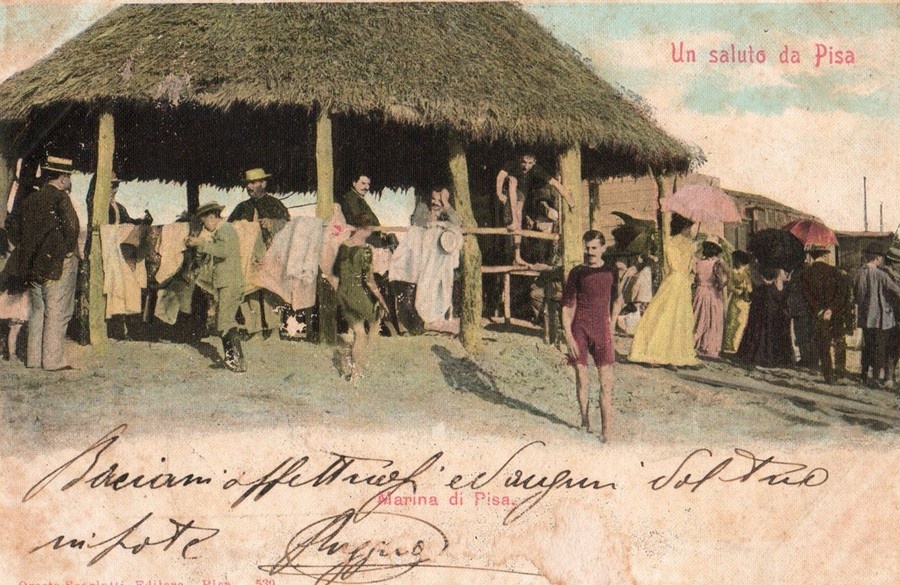 Un saluto da Pisa
Baciani affettuosi ed auguri dal tuo
Marina di Pisa.
nipote
Oreste Scarlatti, Editore, Pisa 530